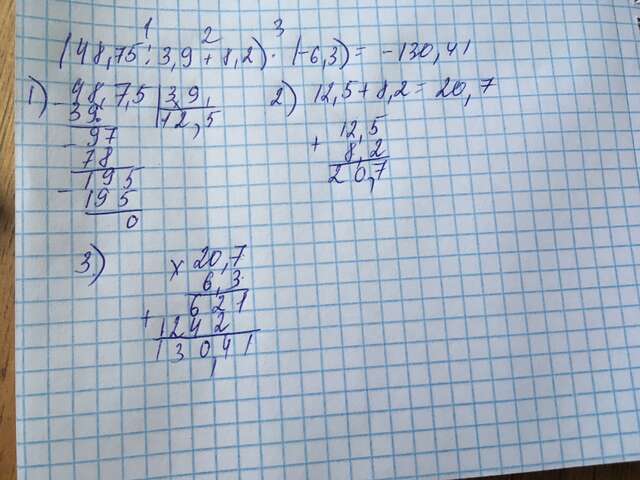 1 2 3
(48,75 : 3,9 + 8,2) · (-6,3) = -130,41
1) - 48,7,5 | 3,9,
39 | 12,5
- 97
78
- 195
195
0
2) 12,5 + 8,2 = 20,7
+ 12,5
8,2
20,7
3.) x 20,7
6,3
+ 621
1242
130,41